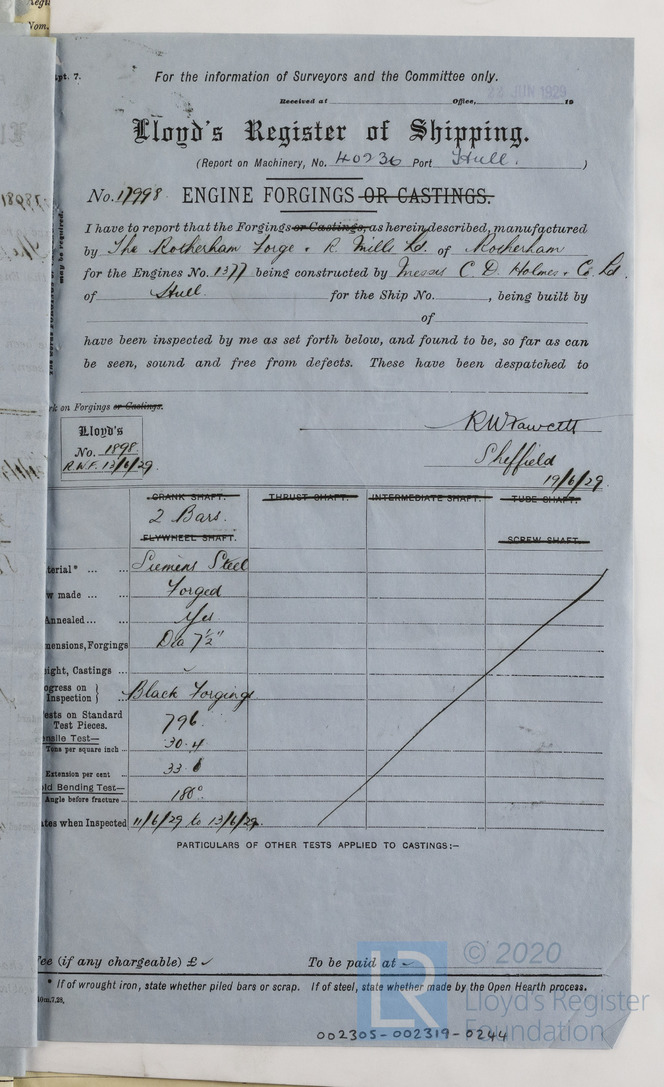 Nom.
pt. 7.
For the information of Surveyors and the Committee only.
JUN 1929
Received at Office, 19
Lloyd's Register of Shipping.
(Report on Machinery, No. 40236 Port Hull.)
No. 17998 ENGINE FORGINGS OR CASTINGS.
I have to report that the Forgings or Castings, as herein described, manufactured
by The Rotherham Forge & R. Mills Ld. of Rotherham
for the Engines No. 1377 being constructed by Messrs C. D. Holmes & Co. Ld.
of Hull. for the Ship No. , being built by
of
have been inspected by me as set forth below, and found to be, so far as can
be seen, sound and free from defects. These have been despatched to
may be required.
rk on Forgings or Castings.
Lloyd's
No. 1898
R.W.F. 13/6/29.
RW Fawcett
Sheffield
19/6/29.
CRANK SHAFT. THRUST SHAFT. INTERMEDIATE SHAFT. TUBE SHAFT.
2 Bars.
FLYWHEEL SHAFT. SCREW SHAFT.
terial* ... ... Siemens Steel
w made ... ... Forged
Annealed ... ... Yes
mensions, Forgings Dia 7½"
ight, Castings ...
ogress on Inspection } Black Forgings
ests on Standard Test Pieces. 796
nsile Test—
Tons per square inch ... 30.4
Extension per cent ... 33.
ld Bending Test—
Angle before fracture ... 180°
tes when Inspected 11/6/29 to 13/6/29.
PARTICULARS OF OTHER TESTS APPLIED TO CASTINGS:—
ee (if any chargeable) £ To be paid at
* If of wrought iron, state whether piled bars or scrap. If of steel, state whether made by the Open Hearth process.
10m,7,28.
LR
© 2020
Lloyd's Register
Foundation
002305-002319-0244